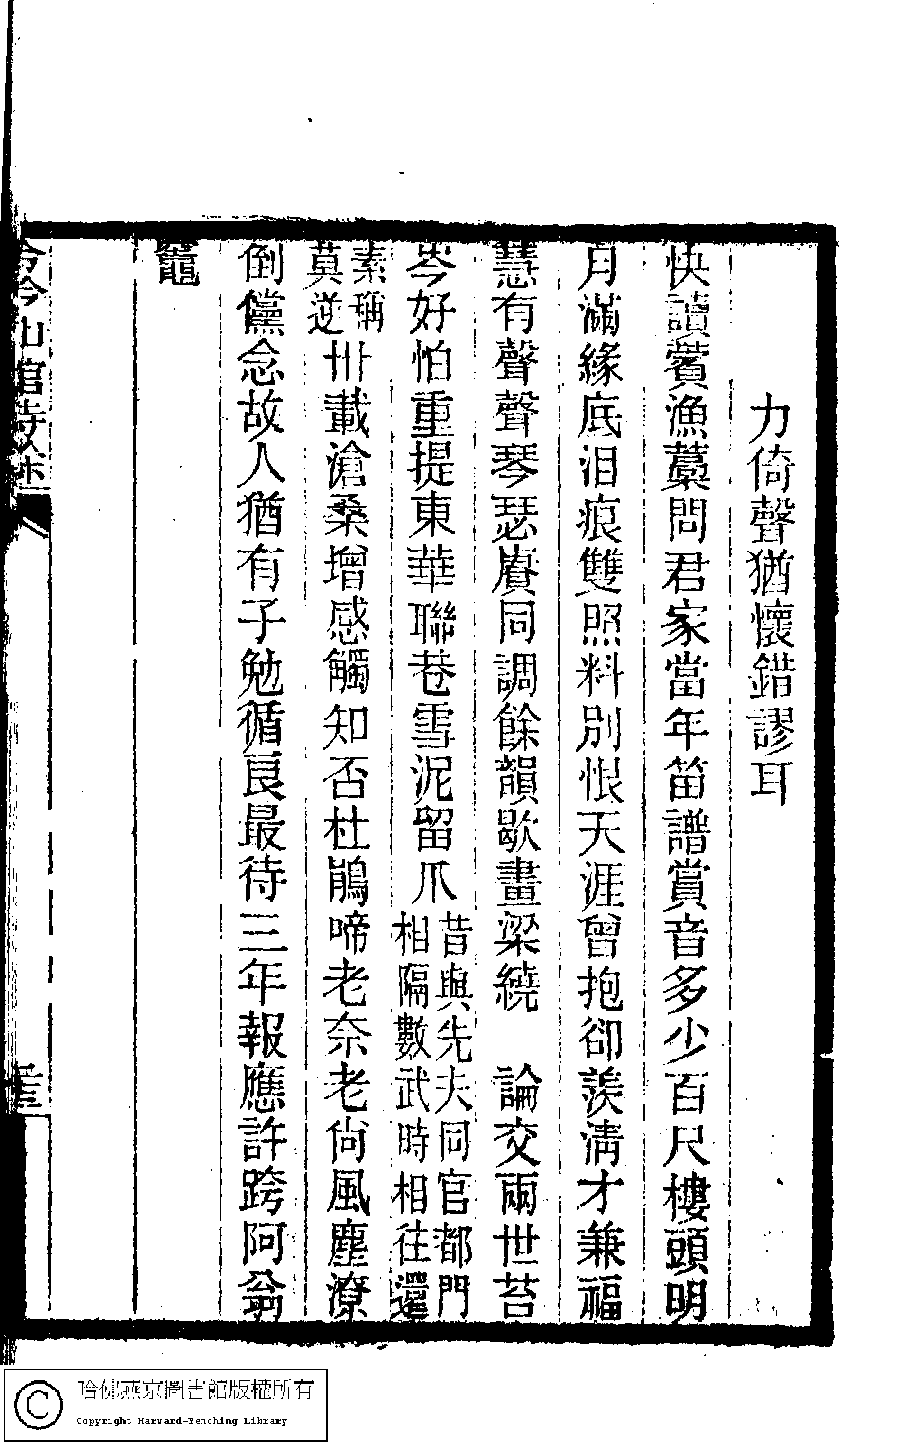 力倚聲猶懷錯謬耳
快讀薲漁藁問君家當年笛譜賞音多少百尺樓頭明
月滿緣底泪痕雙照料別恨天涯曾抱卻羨清才兼福
慧有聲聲琴瑟賡同調餘韻歇畫梁繞　論交兩世苔
岑好怕重提東華聯巷雪泥留爪昔與先夫同官都門相隔數武時相往還
素稱莫逆卅載滄桑增感觸知否杜鵑啼老奈老尙風塵潦
倒儻念故人猶有子勉循良最待三年報應許跨阿翁
竈
山館詩
哈佛燕京圖書館版權所有
Copyright Harvard-Yenching Library